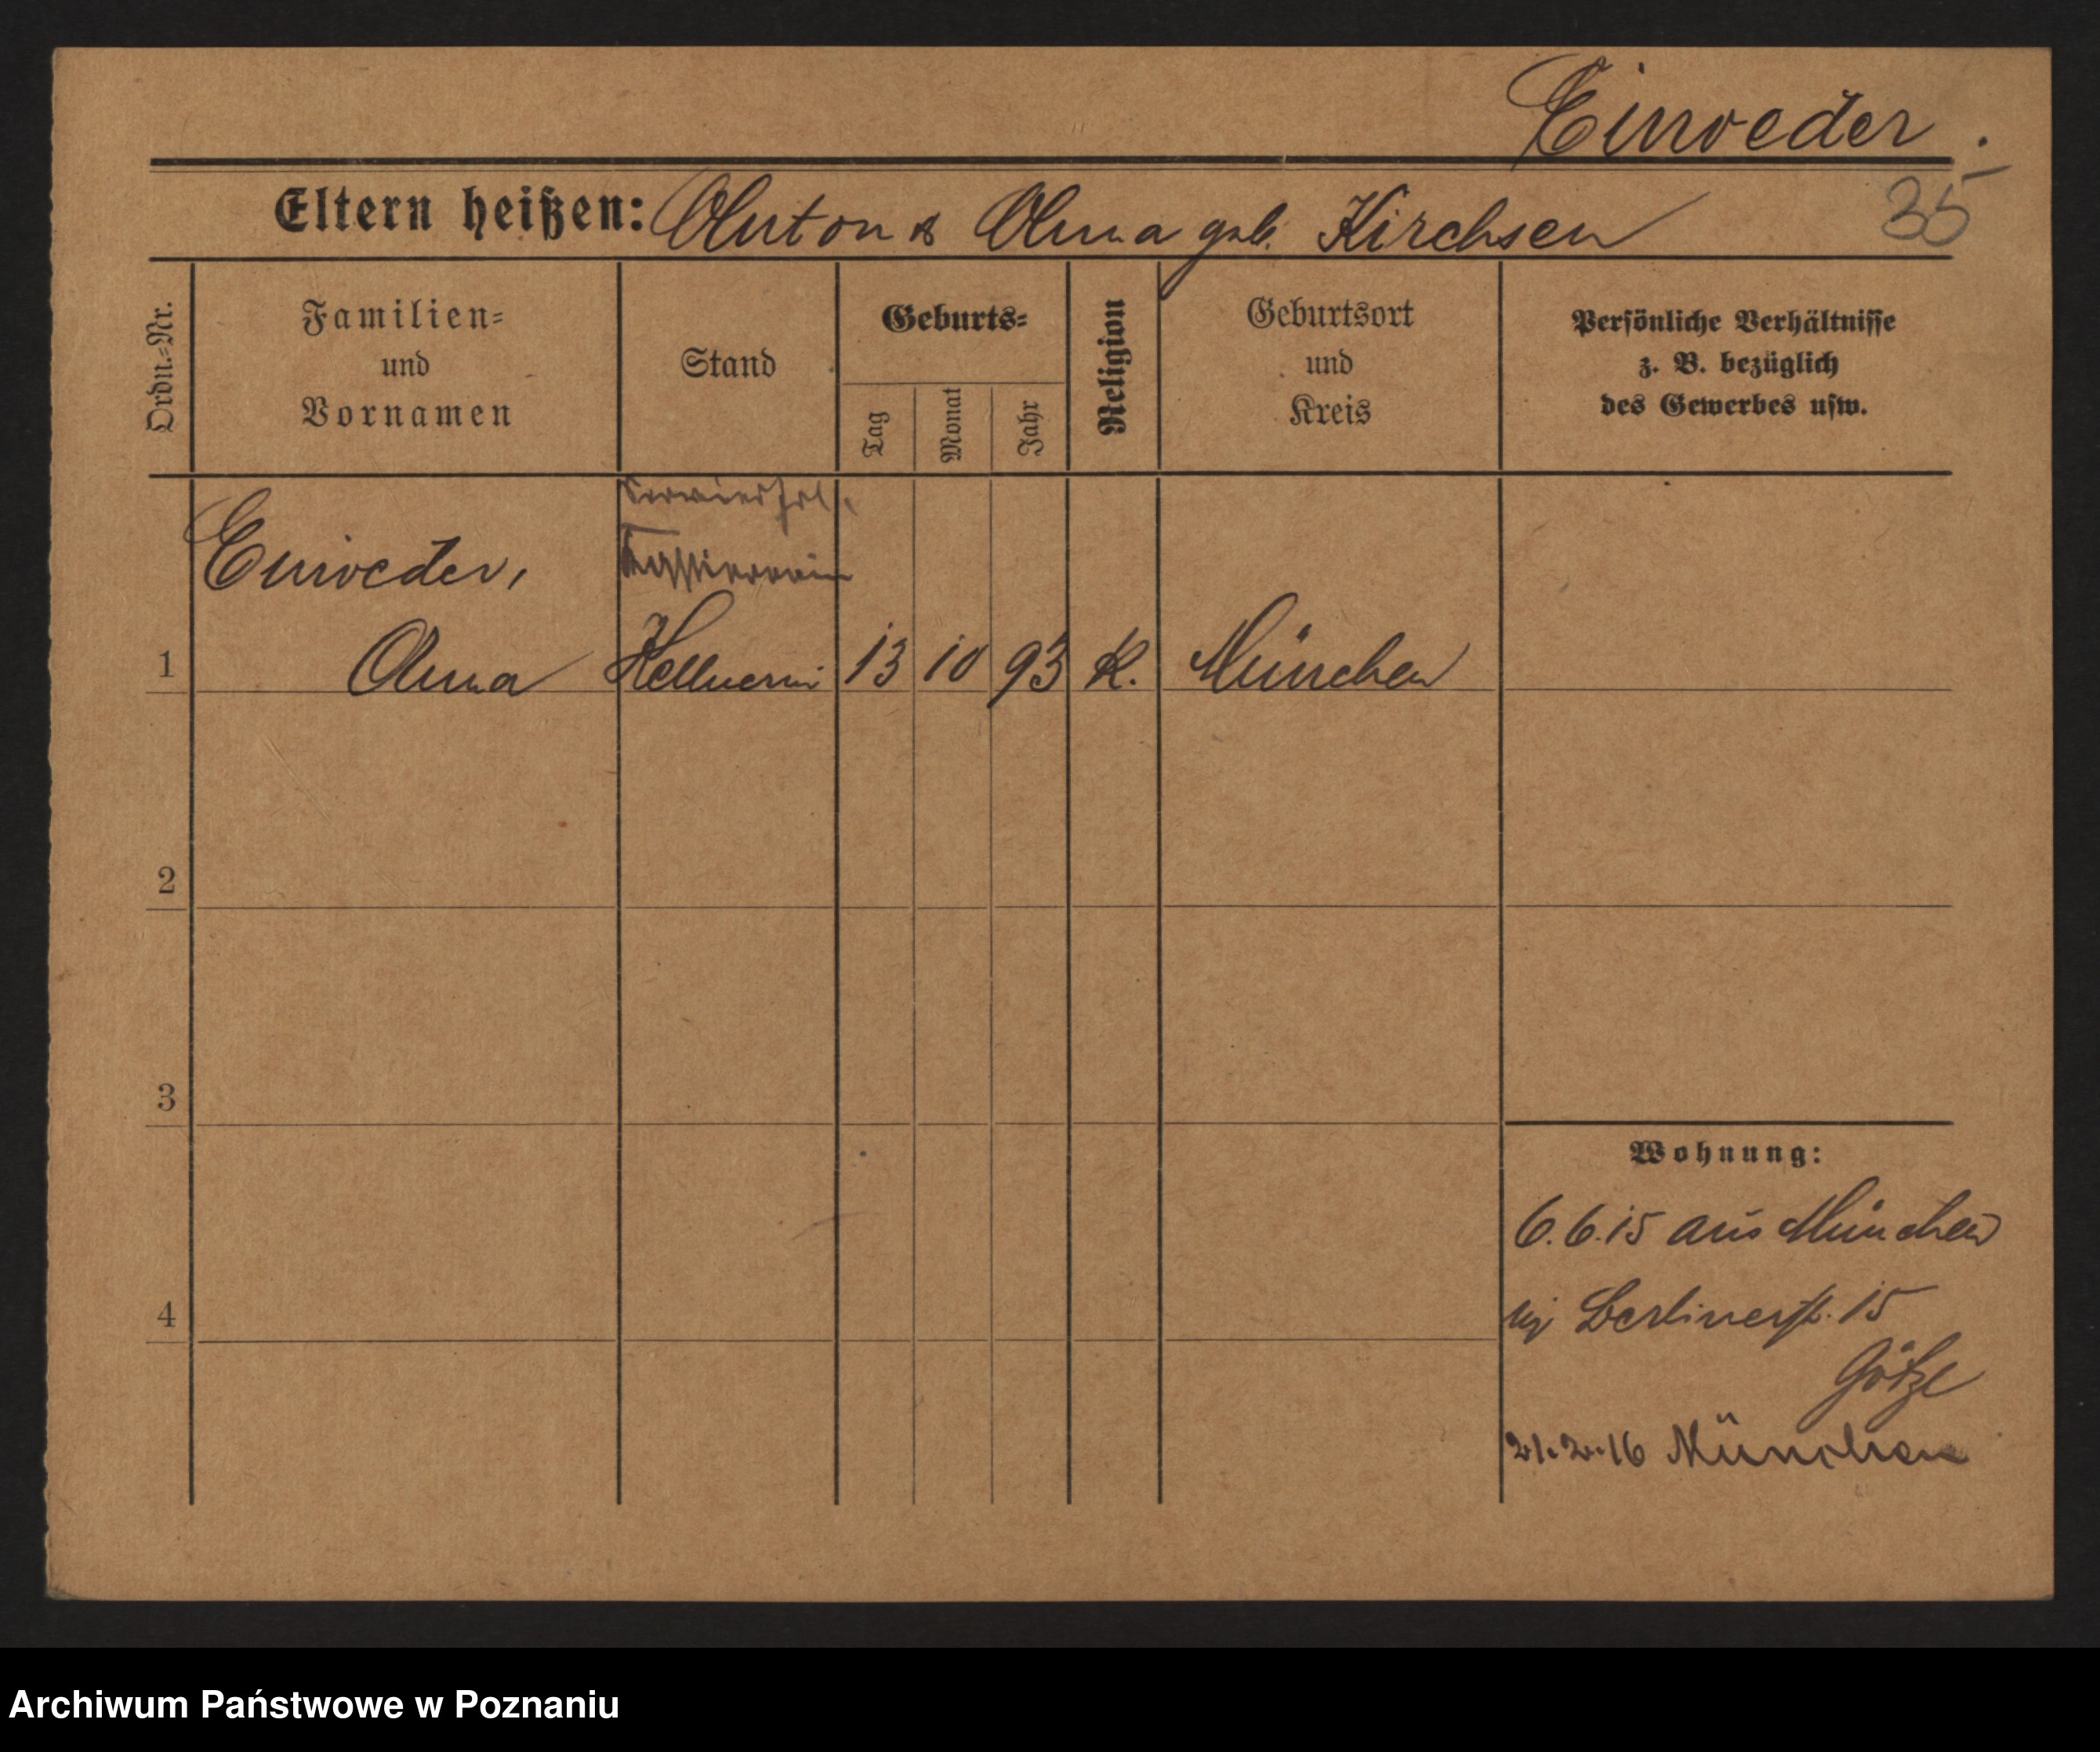 Einweder.
35
Eltern heißen: Anton & Anna geb. Kirchsen
Ordn.-Nr.
Familien-
und
Vornamen
Stand
Geburts-
Tag
Monat
Jahr
Religion
Geburtsort
und
Kreis
Persönliche Verhältnisse
z. B. bezüglich
des Gewerbes usw.
Servierfrl.
Kassiererin
Einweder,
1 Anna Kellnerin 13 10 93 K. München
2
3
4
Wohnung:
6.6.15 aus München
Berlinerstr. 15
Götze
21.2.16 München
Archiwum Państwowe w Poznaniu